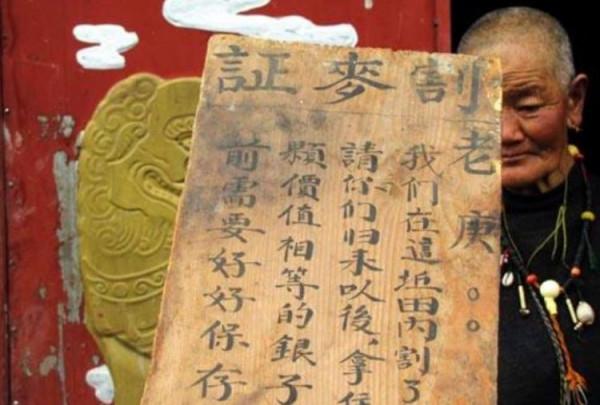 割麥証
老庚。。
我们在這坵田内割了
請你们归来以後、拿
顆價值相等的銀子
前需要好好保存